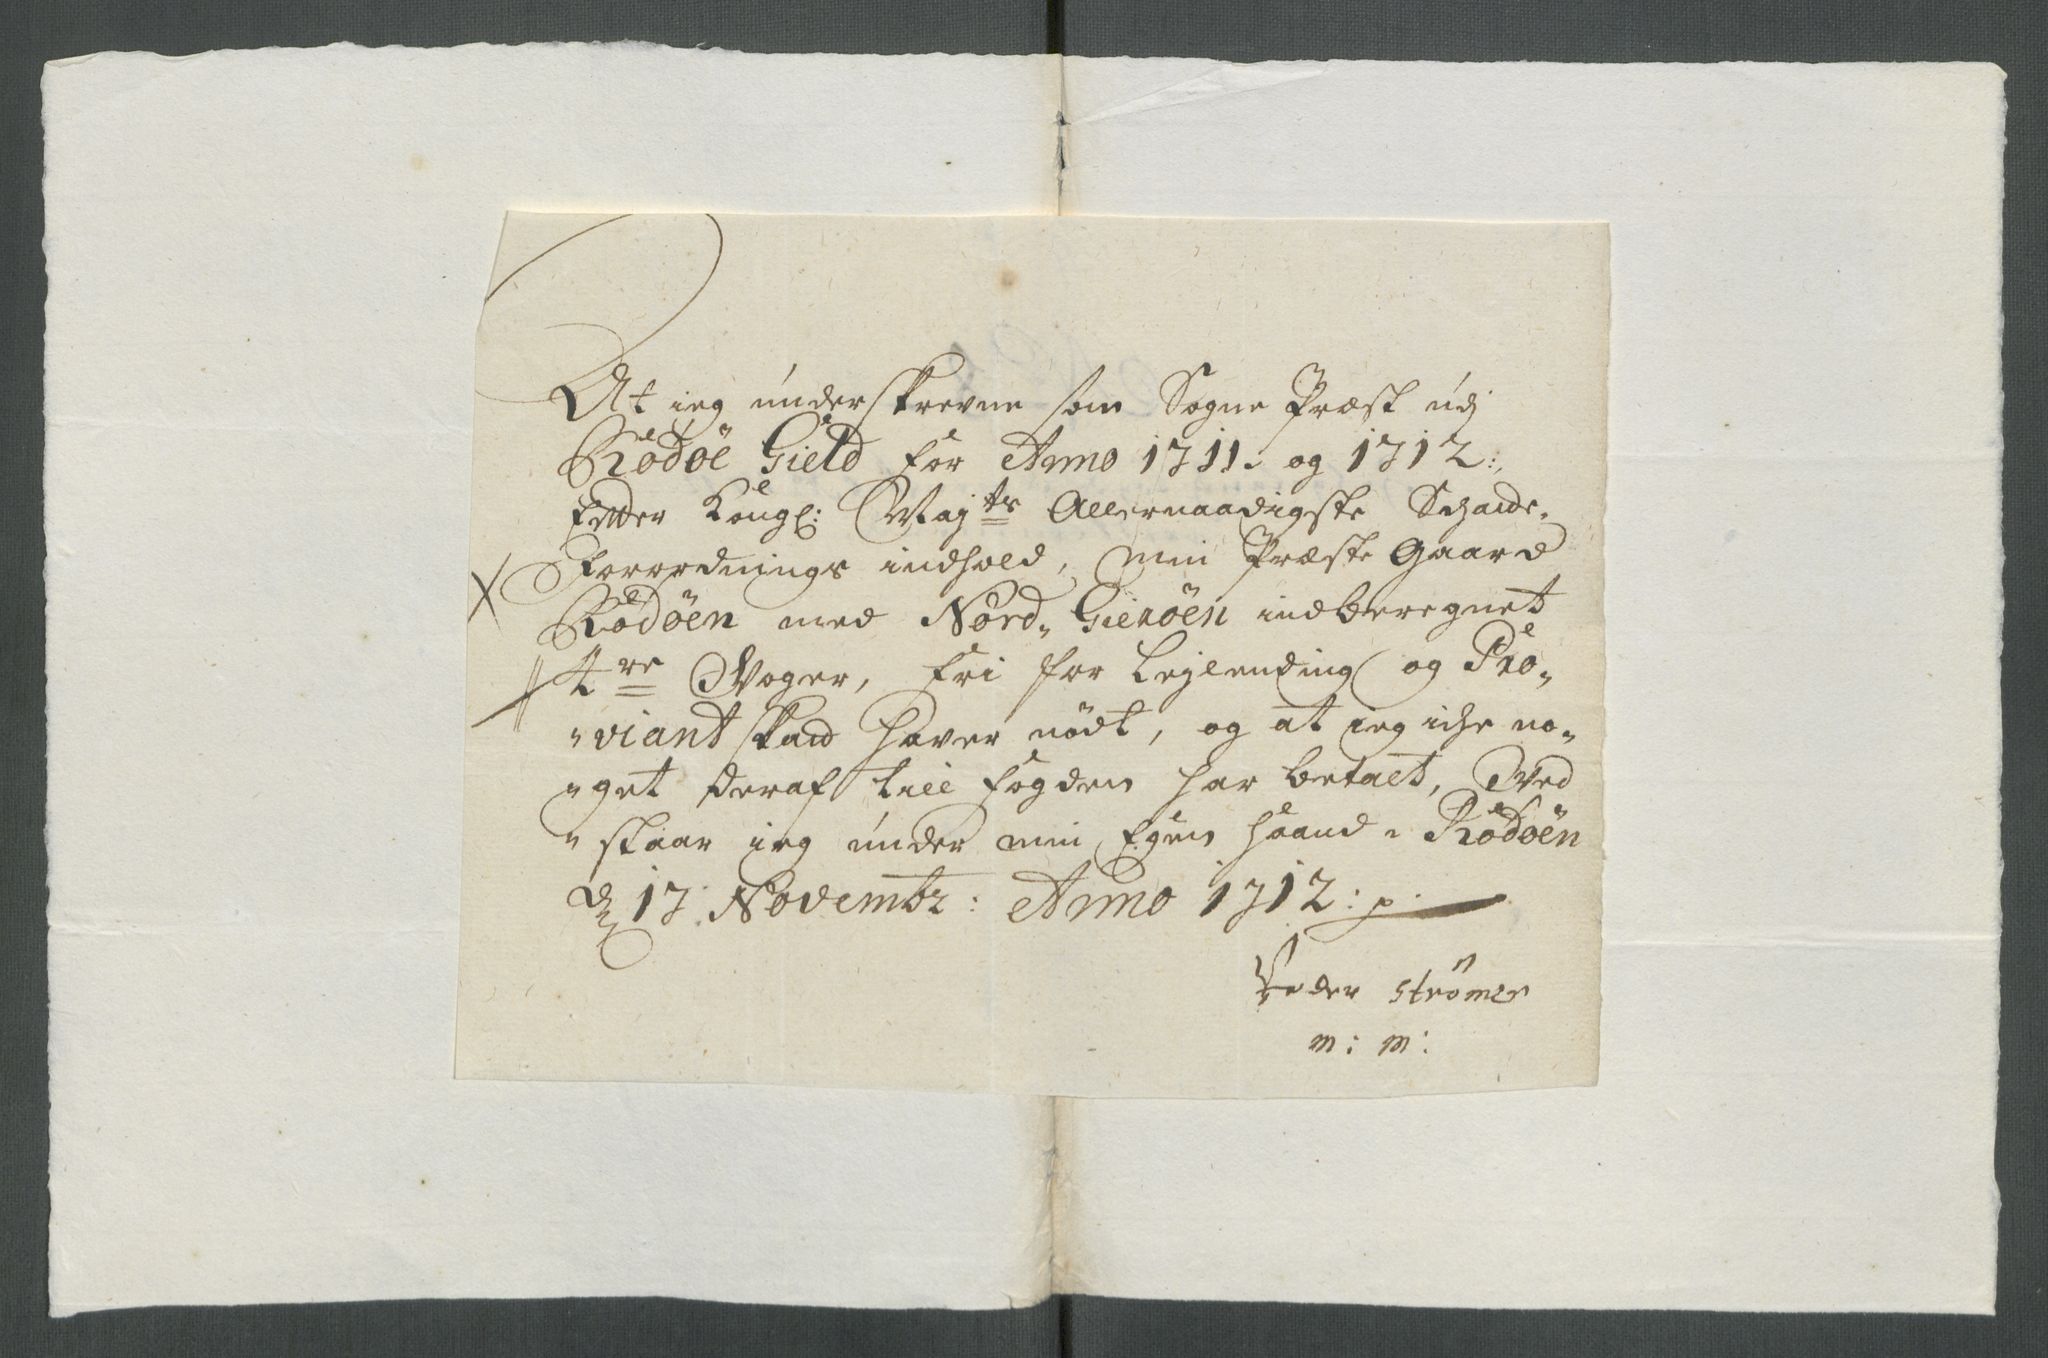 At ieg underskrevne som Sogne Præst udj
Rödöe Gield for Anno 1711. og 1712:,
Efter Kongl: Maj<sup>ts</sup> Allernaadigste Schatte-
Forordnings indhold, min Præste Gaard
Rödöen med Nord- Gieröen indberegnet
4<sup>re</sup> Woger, fri for Lejlending og Pro-
-viant skatt haver nödt, og at ieg iche no-
-get deraf till fogden har betalt, Ved
-staar ieg under min Egen Haand. Rödöen
d 17. Novembr: Anno 1712: p.
Peder Strömer
m: m: